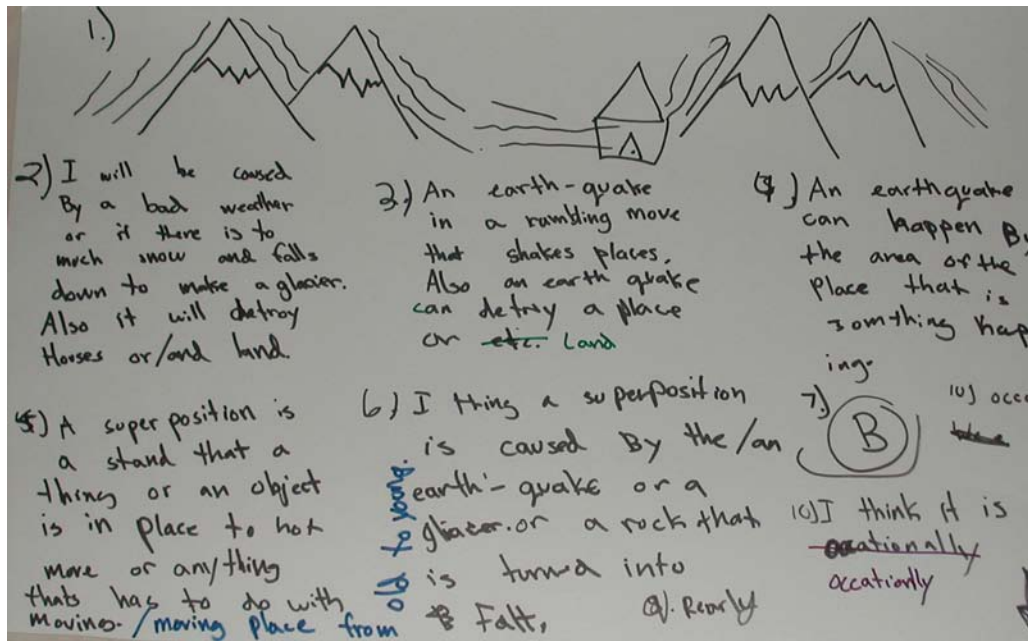 1.)
2) I will be caused
By a bad weather
or if there is to
much snow and falls
down to make a glacier.
Also it will detroy
Houses or/and land.
3.) An earth-quake
in a rumbling move
that shakes places.
Also an earth quake
can detroy a place
or etc. Land
4.) An earthquake
can happen By
the area of the
place that is
somthing hap
ing.
5) A super position is
a stand that a
thing or an object
is in place to not
move or anything
thats has to do with
moving. /moving place from
old to young.
6.) I thing a superposition
is caused By the/an
earth-quake or a
gliacer. or a rock that
is turned into
Falt,
9). Rearly
7.) B
10) occa
10) I think it is
occationally